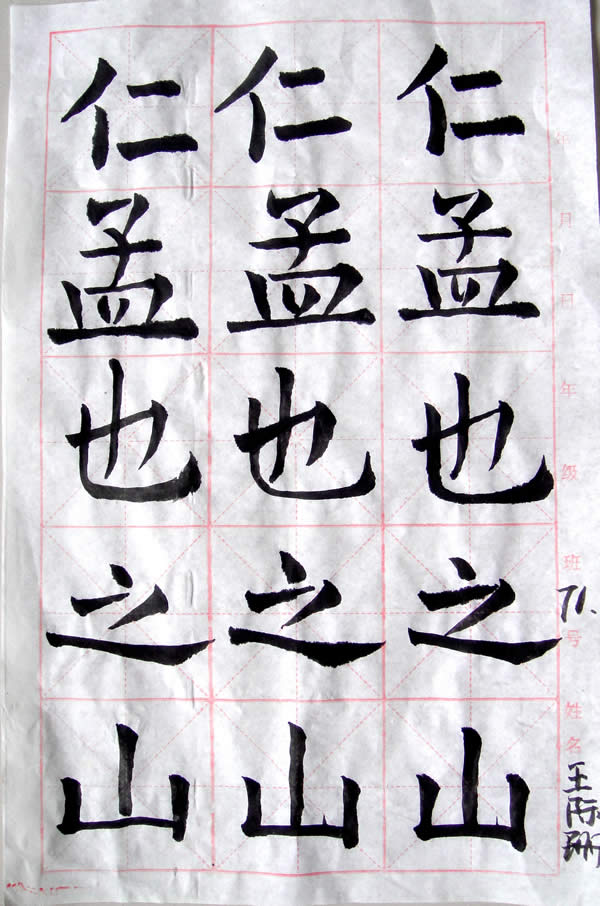 年月日年级班71.号姓名王
仁孟也之山
仁孟也之山
仁孟也之山